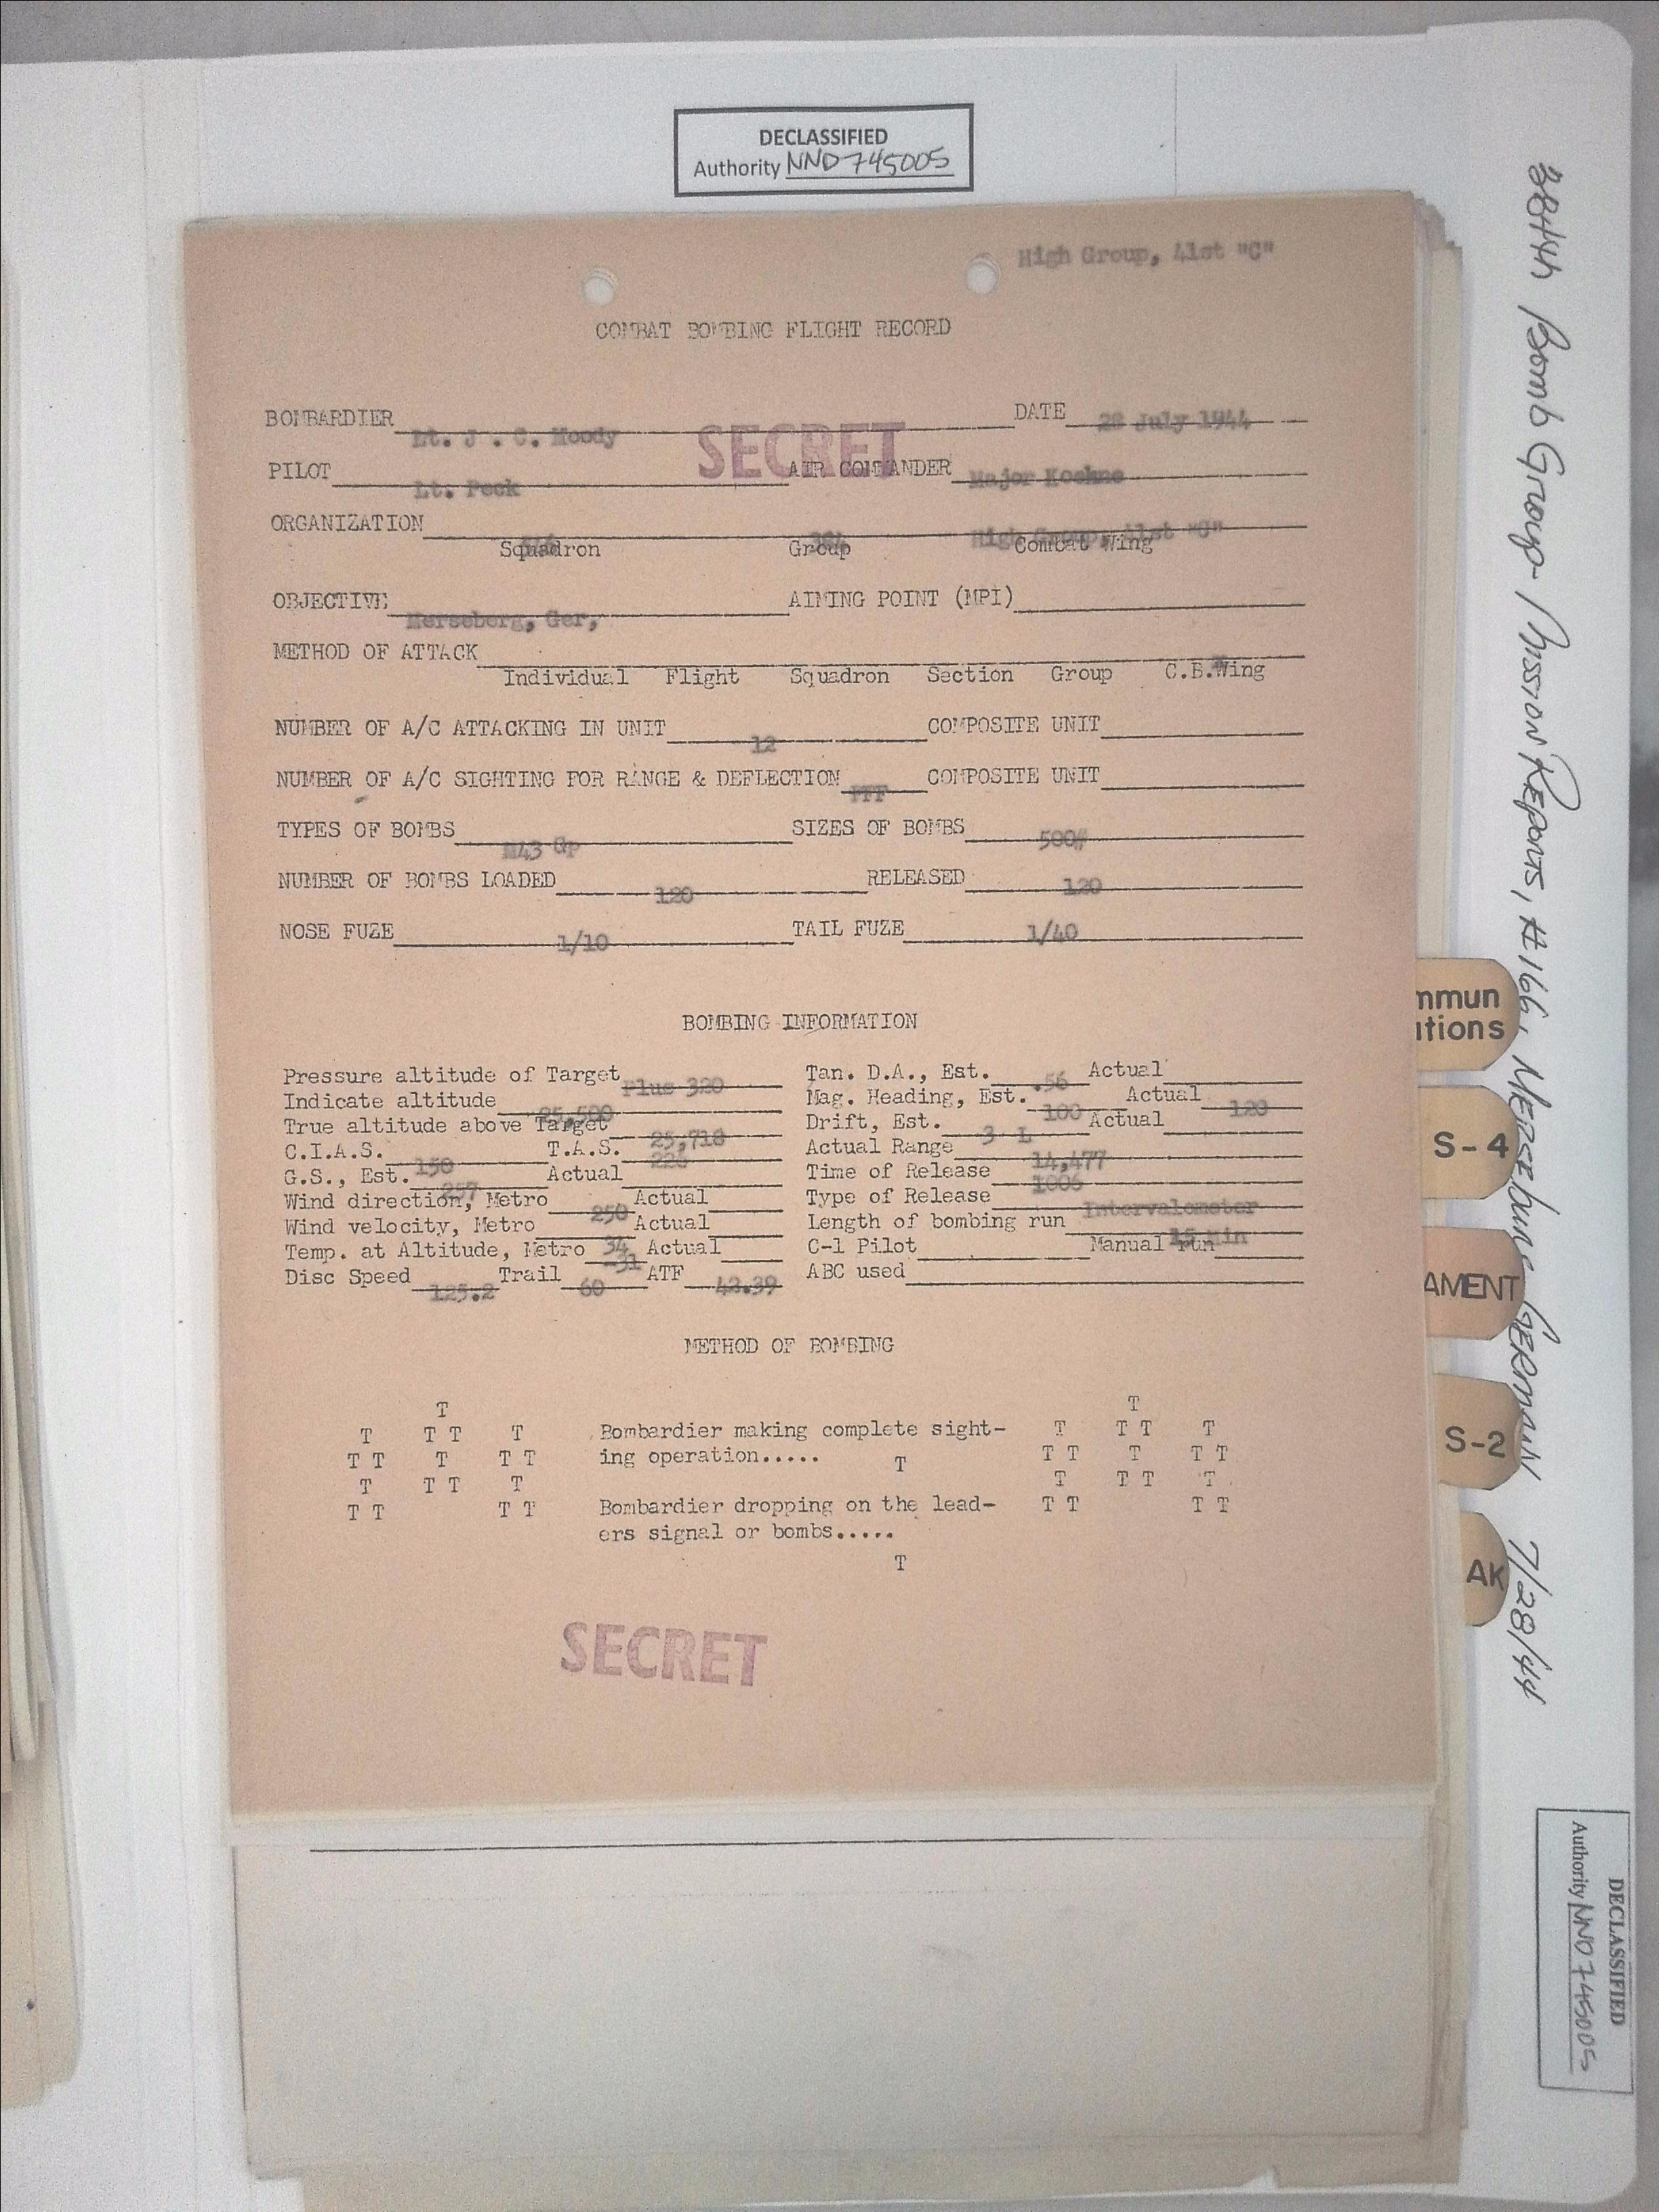 DECLASSIFIED
Authority NND 745005
High Group, 41st "C"
COMBAT BOMBING FLIGHT RECORD
BOMBARDIER Lt. J . C. Moody DATE 28 July 1944
SECRET
PILOT Lt. Peck AIR COMMANDER Major Koehne
ORGANIZATION High Group, 41st "C"
Squadron Group Combat Wing
OBJECTIVE Merseberg, Ger, AIMING POINT (MPI)
METHOD OF ATTACK
Individual Flight Squadron Section Group C.B.Wing
NUMBER OF A/C ATTACKING IN UNIT 12 COMPOSITE UNIT
NUMBER OF A/C SIGHTING FOR RANGE & DEFLECTION PFF COMPOSITE UNIT
TYPES OF BOMBS M43 Gp SIZES OF BOMBS 500#
NUMBER OF BOMBS LOADED 120 RELEASED 120
NOSE FUZE 1/10 TAIL FUZE 1/40
BOMBING INFORMATION
Pressure altitude of Target Plus 320 Tan. D.A., Est. .56 Actual
Indicate altitude 25,500 Mag. Heading, Est. 100 Actual 120
True altitude above Target 25,718 Drift, Est. 3 L Actual
C.I.A.S. 150 T.A.S. Actual Range 14,477
G.S., Est. 257 Actual Time of Release 1006
Wind direction, Metro 250 Actual Type of Release Intervalometer
Wind velocity, Metro 34 Actual Length of bombing run 15 Min
Temp. at Altitude, Metro -31 Actual C-1 Pilot Manual run
Disc Speed 125.2 Trail 60 ATF 42.39 ABC used
METHOD OF BOMBING
T T
T T T T Bombardier making complete sight- T T T T
T T T T T ing operation..... T T T T T T
T T T T T T T T
T T T T Bombardier dropping on the lead- T T T T
ers signal or bombs.....
T
SECRET
384th Bomb Group - Mission Reports, #166, Merseburg Germany 7/28/44
mmun
ations
S-4
AMENT
S-2
AK
DECLASSIFIED
Authority NND 745005